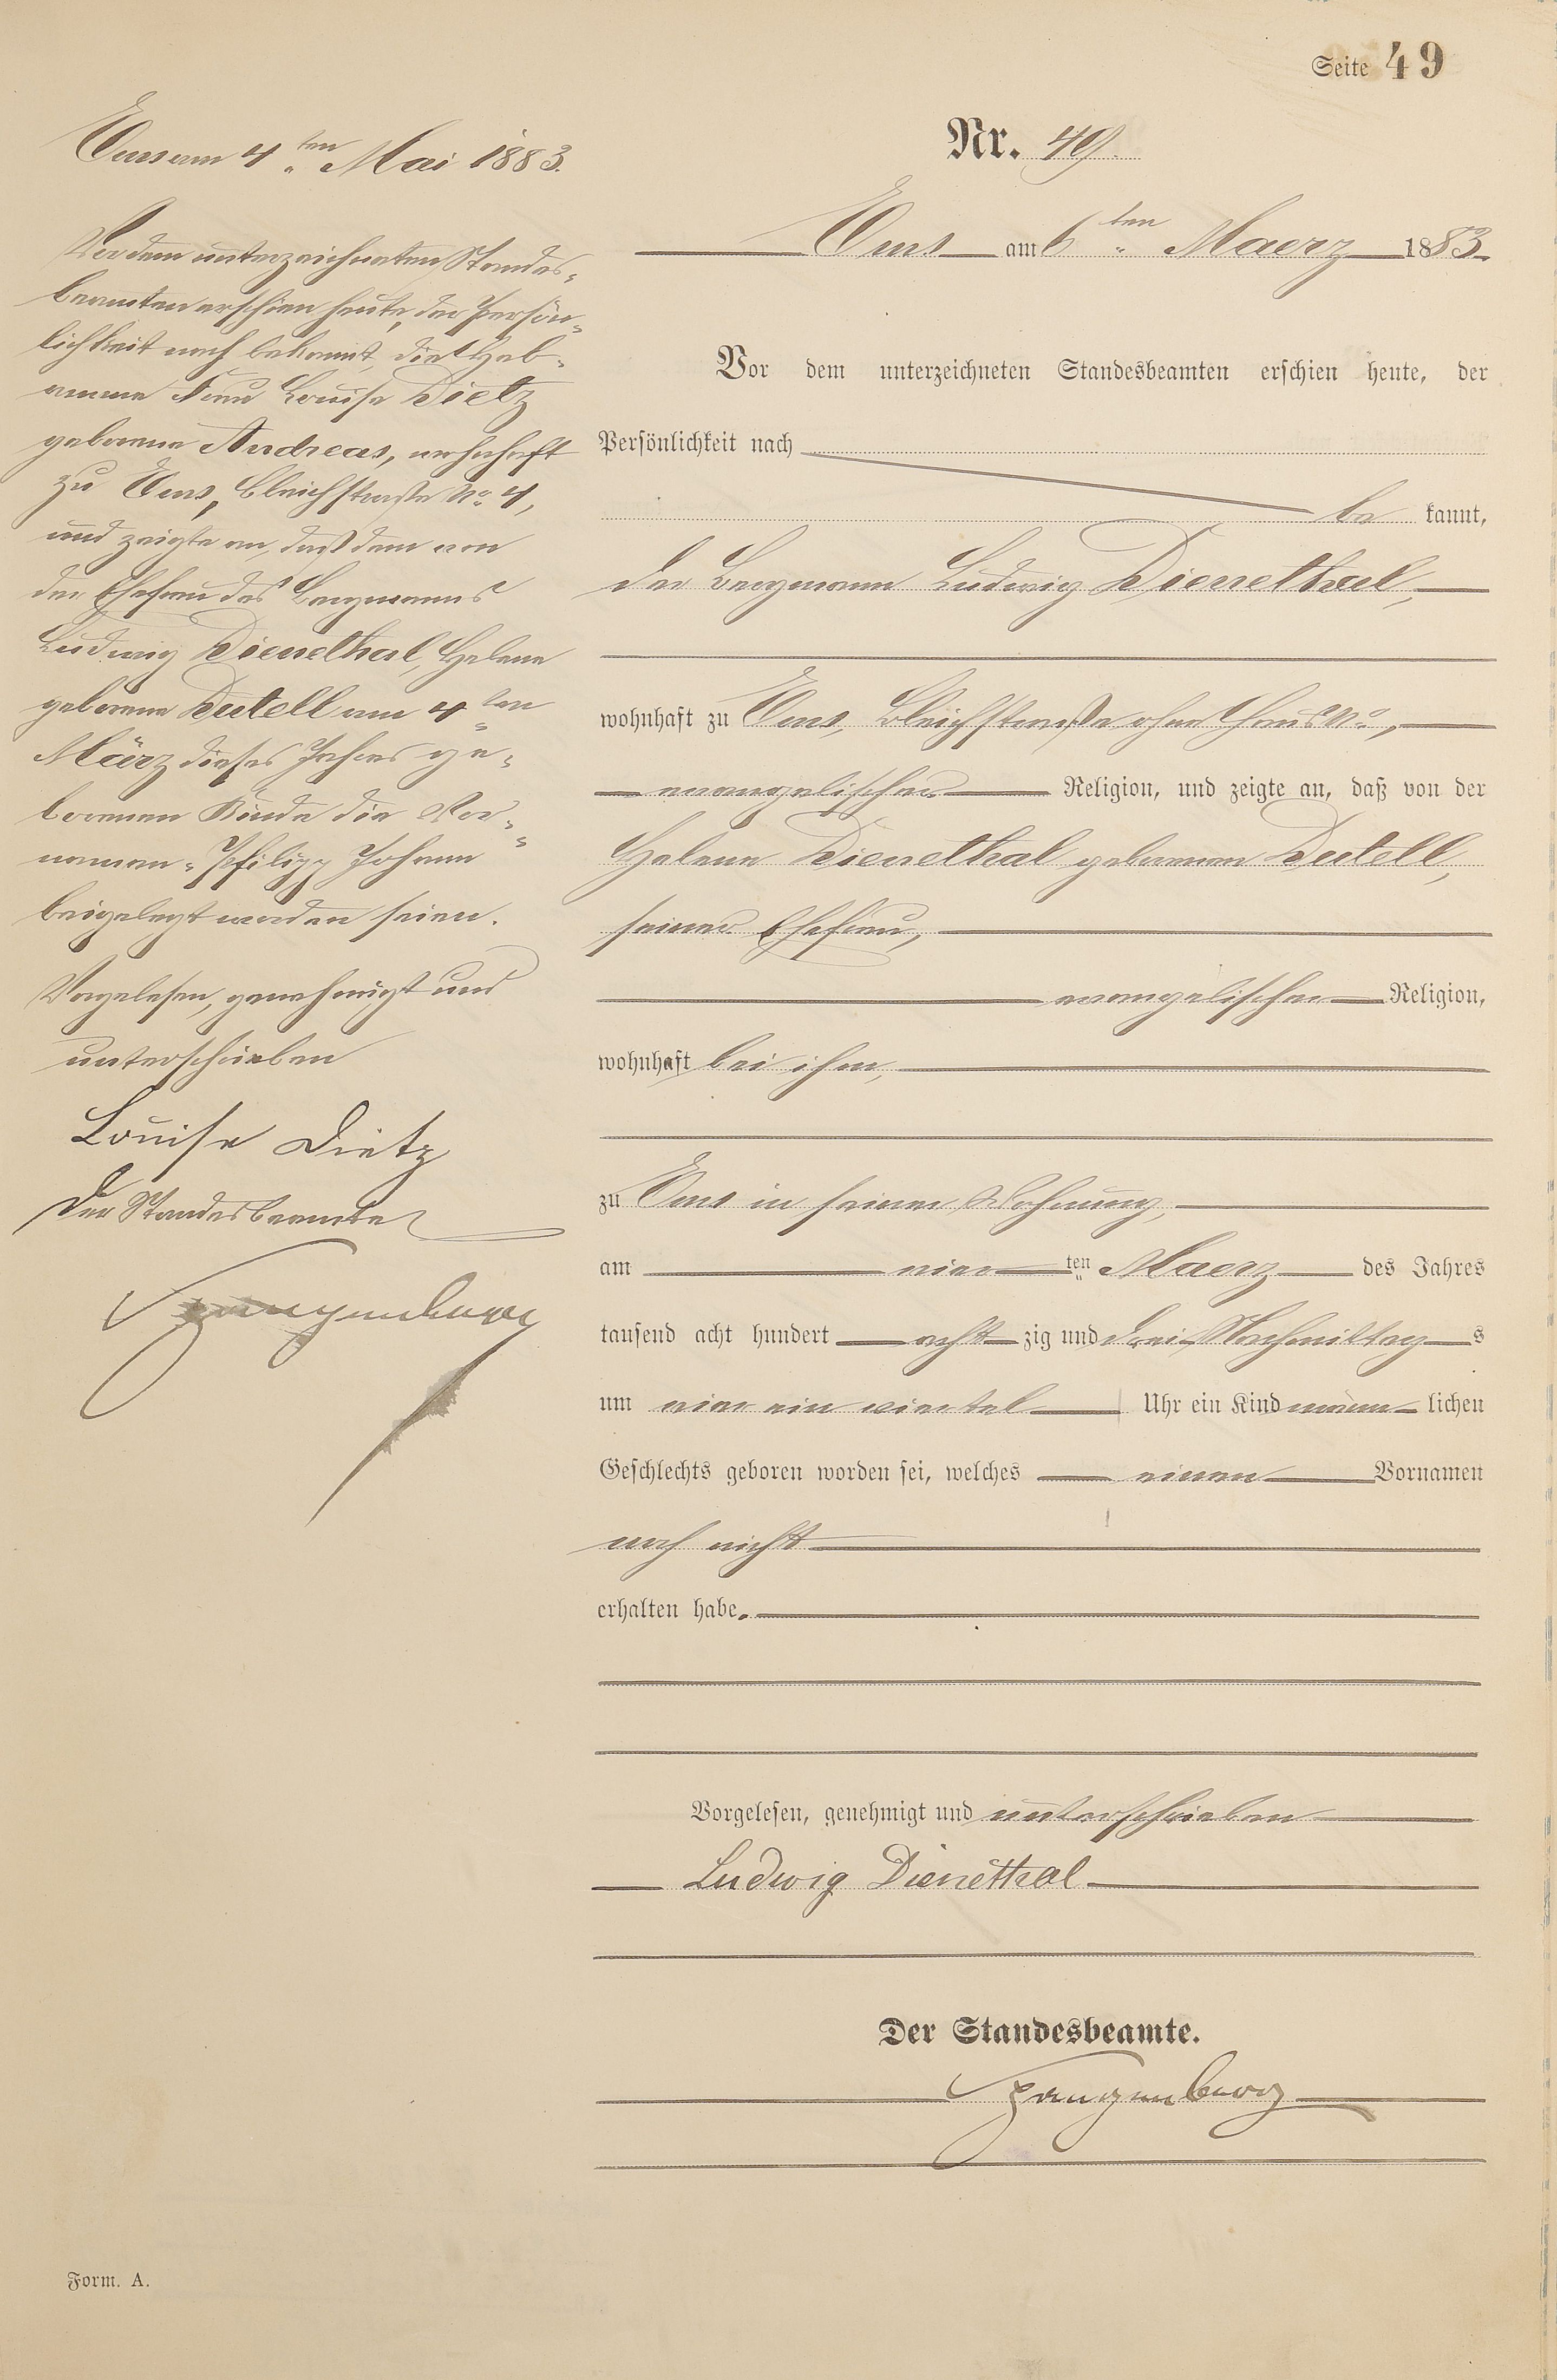 Seite 49
Ems am 4ten Mai 1883.
Vor dem unterzeichneten Standes-
beamten erschien heute, der Persön-
lichkeit nach bekannt, die Heb-
amme Frau Louise Dietz
geborene Andreas, wohnhaft
zu Ems, Bleichstraße No. 4,
und zeigte an, daß dem von
der Ehefrau des Bergmanns
Ludwig Dienethal, Helene
geborene Dutell am 4ten
März dieses Jahres ge-
borenen Kinde die Vor-
namen "Philipp Johann"
beigelegt worden seien.
Vorgelesen, genehmigt und
unterschrieben
Louise Dietz
Der Standesbeamte
Spangenberg
Nr. 49.
Ems am 6ten Maerz 1883.
Vor dem unterzeichneten Standesbeamten erschien heute, der
Persönlichkeit nach
bekannt,
der Bergmann Ludwig Dienethal,
wohnhaft zu Ems, Bleichstraße ohne Haus No.,
evangelischer Religion, und zeigte an, daß von der
Helene Dienethal geborenen Dutell,
seiner Ehefrau,
evangelischer Religion,
wohnhaft bei ihm,
zu Ems in seiner Wohnung,
am vierten Maerz des Jahres
tausend acht hundert achtzig und drei Nachmittags
um vier ein viertel Uhr ein Kind männlichen
Geschlechts geboren worden sei, welches einen Vornamen
noch nicht
erhalten habe.
Vorgelesen, genehmigt und unterschrieben
Ludwig Dienethal
Der Standesbeamte.
Spangenberg
Form. A.